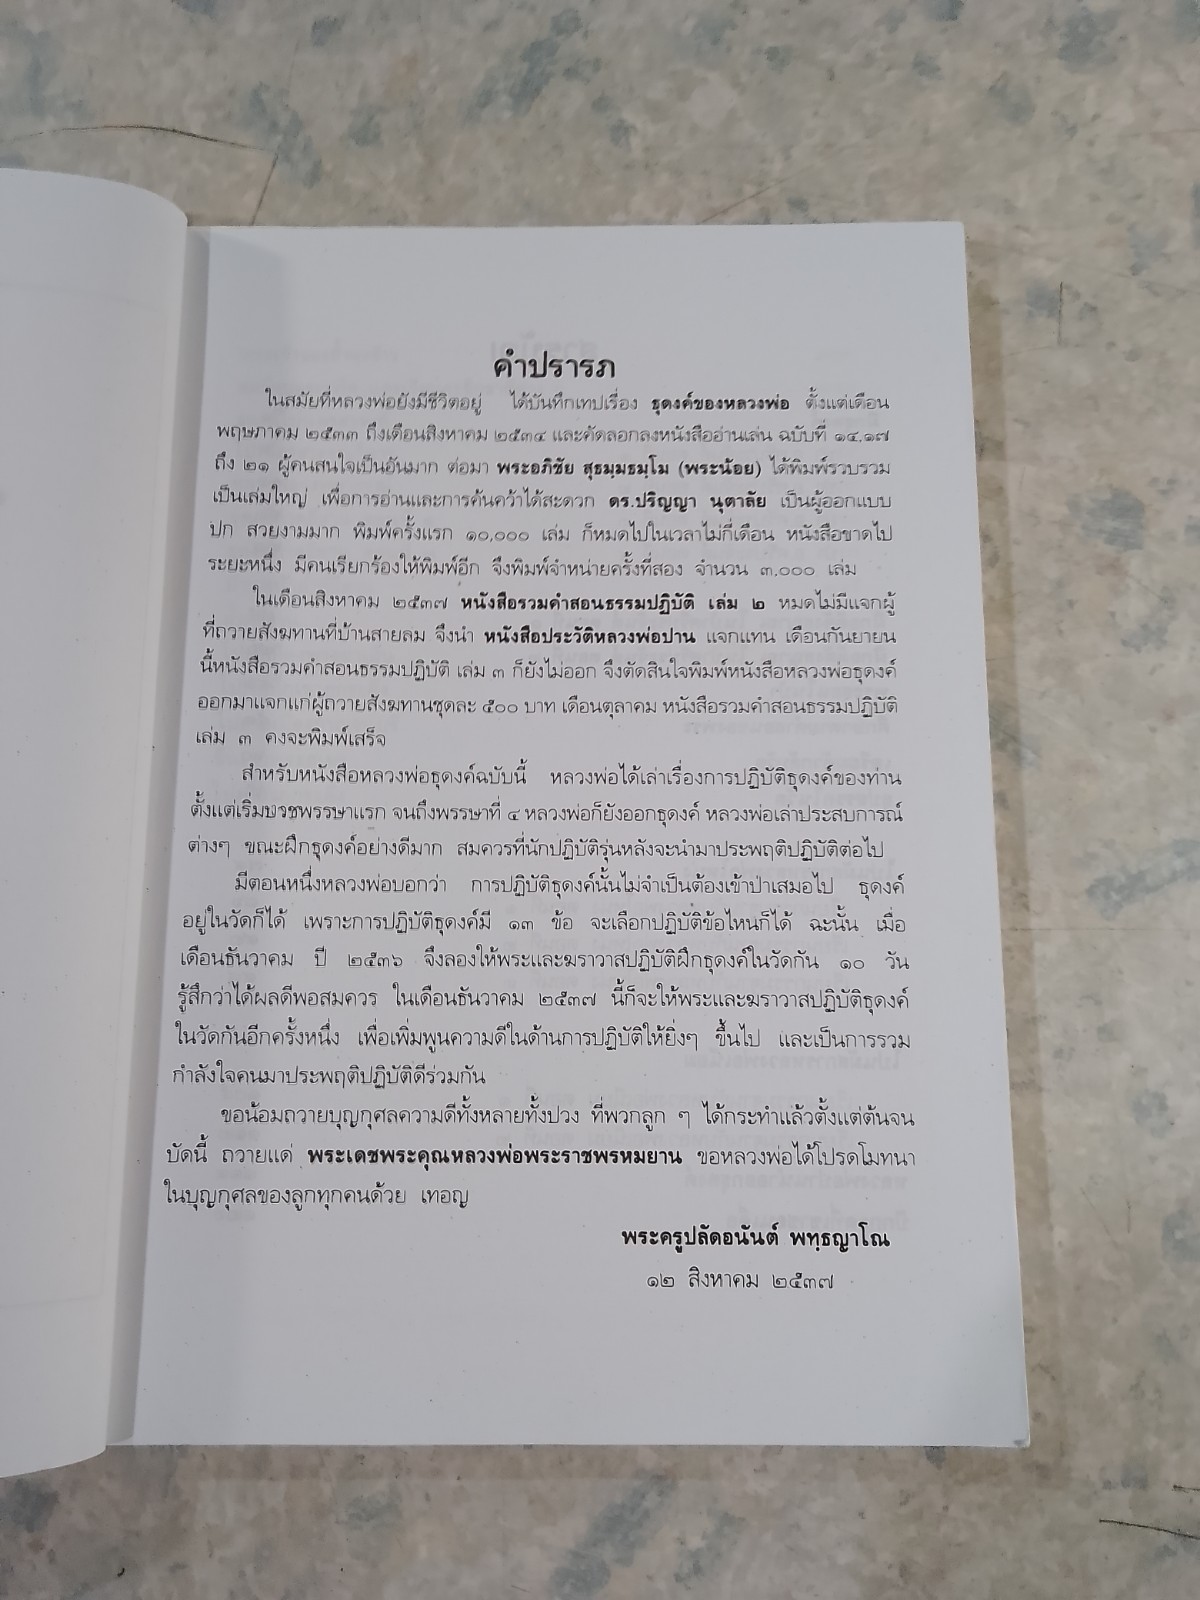 คำปรารภ
ในสมัยที่หลวงพ่อยังมีชีวิตอยู่ ได้บันทึกเทปเรื่อง ธุดงค์ของหลวงพ่อ ตั้งแต่เดือน
พฤษภาคม ๒๕๓๓ ถึงเดือนสิงหาคม ๒๕๓๔ และคัดลอกลงหนังสืออ่านเล่น ฉบับที่ ๑๔.๑๗
ถึง ๒๑ ผู้คนสนใจเป็นอันมาก ต่อมา พระอภิชัย สุธมฺมธมฺโม (พระน้อย) ได้พิมพ์รวบรวม
เป็นเล่มใหญ่ เพื่อการอ่านและการค้นคว้าได้สะดวก ดร.ปริญญา นุตาลัย เป็นผู้ออกแบบ
ปก สวยงามมาก พิมพ์ครั้งแรก ๑๐,๐๐๐ เล่ม ก็หมดไปในเวลาไม่กี่เดือน หนังสือขาดไป
ระยะหนึ่ง มีคนเรียกร้องให้พิมพ์อีก จึงพิมพ์จำหน่ายครั้งที่สอง จำนวน ๓,๐๐๐ เล่ม
ในเดือนสิงหาคม ๒๕๓๗ หนังสือรวมคำสอนธรรมปฏิบัติ เล่ม ๒ หมดไม่มีแจกผู้
ที่ถวายสังฆทานที่บ้านสายลม จึงนำ หนังสือประวัติหลวงพ่อปาน แจกแทน เดือนกันยายน
นี้หนังสือรวมคำสอนธรรมปฏิบัติ เล่ม ๓ ก็ยังไม่ออก จึงตัดสินใจพิมพ์หนังสือหลวงพ่อธุดงค์
ออกมาแจกแก่ผู้ถวายสังฆทานชุดละ ๕๐๐ บาท เดือนตุลาคม หนังสือรวมคำสอนธรรมปฏิบัติ
เล่ม ๓ คงจะพิมพ์เสร็จ
สำหรับหนังสือหลวงพ่อธุดงค์ฉบับนี้ หลวงพ่อได้เล่าเรื่องการปฏิบัติธุดงค์ของท่าน
ตั้งแต่เริ่มบวชพรรษาแรก จนถึงพรรษาที่ ๔ หลวงพ่อก็ยังออกธุดงค์ หลวงพ่อเล่าประสบการณ์
ต่างๆ ขณะฝึกธุดงค์อย่างดีมาก สมควรที่นักปฏิบัติรุ่นหลังจะนำมาประพฤติปฏิบัติต่อไป
มีตอนหนึ่งหลวงพ่อบอกว่า การปฏิบัติธุดงค์นั้นไม่จำเป็นต้องเข้าป่าเสมอไป ธุดงค์
อยู่ในวัดก็ได้ เพราะการปฏิบัติธุดงค์มี ๑๓ ข้อ จะเลือกปฏิบัติข้อไหนก็ได้ ฉะนั้น เมื่อ
เดือนธันวาคม ปี ๒๕๓๖ จึงลองให้พระและฆราวาสปฏิบัติฝึกธุดงค์ในวัดกัน ๑๐ วัน
รู้สึกว่าได้ผลดีพอสมควร ในเดือนธันวาคม ๒๕๓๗ นี้ก็จะให้พระและฆราวาสปฏิบัติธุดงค์
ในวัดกันอีกครั้งหนึ่ง เพื่อเพิ่มพูนความดีในด้านการปฏิบัติให้ยิ่งๆ ขึ้นไป และเป็นการรวม
กำลังใจคนมาประพฤติปฏิบัติดีร่วมกัน
ขอน้อมถวายบุญกุศลความดีทั้งหลายทั้งปวง ที่พวกลูก ๆ ได้กระทำแล้วตั้งแต่ต้นจน
บัดนี้ ถวายแด่ พระเดชพระคุณหลวงพ่อพระราชพรหมยาน ขอหลวงพ่อได้โปรดโมทนา
ในบุญกุศลของลูกทุกคนด้วย เทอญ
พระครูปลัดอนันต์ พทฺธญาโณ
๑๒ สิงหาคม ๒๕๓๗